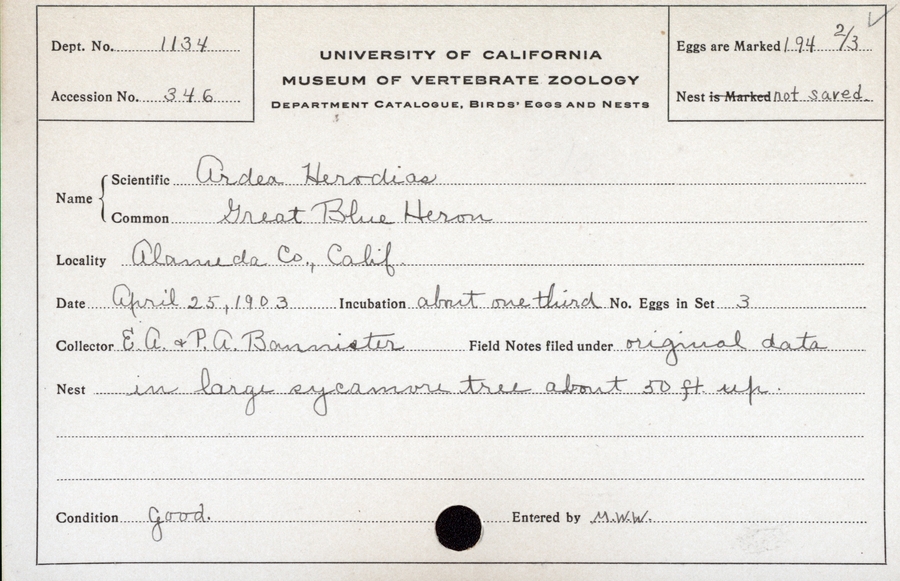 Dept. No. 1134
Accession No. 346
UNIVERSITY OF CALIFORNIA
MUSEUM OF VERTEBRATE ZOOLOGY
DEPARTMENT CATALOGUE, BIRDS' EGGS AND NESTS
Eggs are Marked 194 2/3
Nest is Marked not saved.
Name
Scientific Ardea Herodias
Common Great Blue Heron
Locality Alameda Co., Calif.
Date April 25, 1903 Incubation about one third No. Eggs in Set 3
Collector E. A. & P. A. Bannister Field Notes filed under original data
Nest in large sycamore tree about 50 ft. up.
Condition Good. Entered by M.W.W.